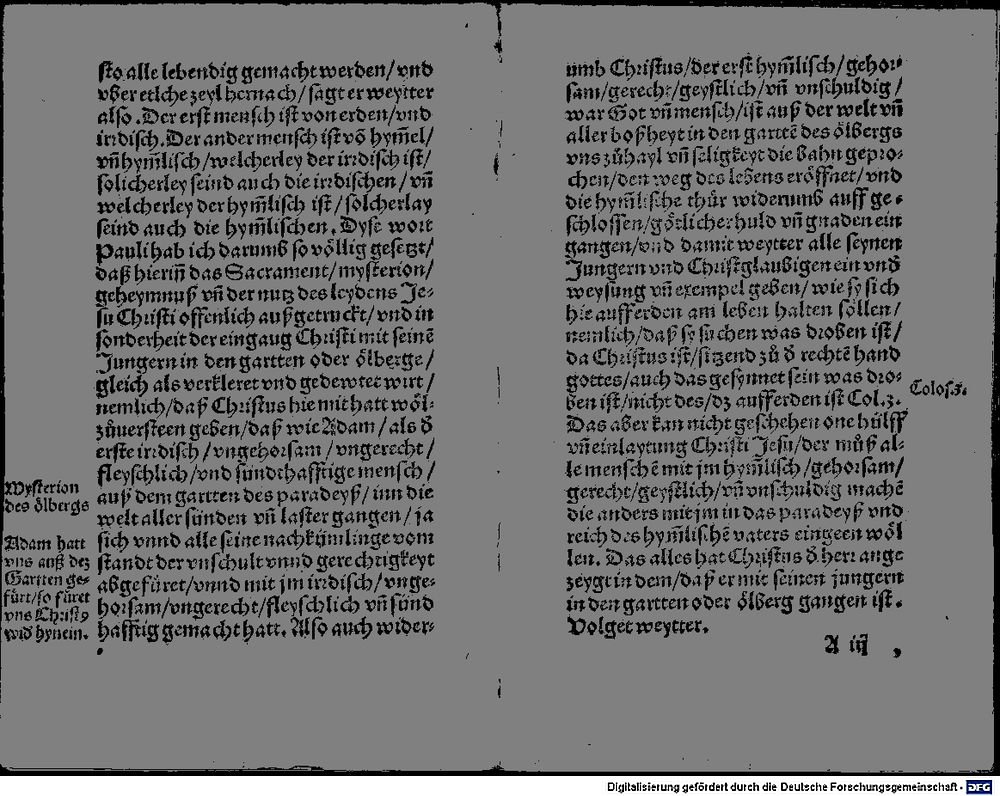 sto alle lebendig gemacht werden/ vnd
vber etlche zeyl hernach/ sagt er weytter
also. Der erst mensch ist von erden/ vnd
irrdisch. Der ander mensch ist vō hym̄el/
vn̄ hym̄lisch/ welcherley der irrdisch ist/
solicherley seind auch die irrdischen/ vn̄
welcherley der hym̄lisch ist/ solcherlay
seind auch die hym̄lischen. Dyse wort
Pauli hab ich darumb so völlig gesetzt/
daß hierin̄ das Sacrament/ mysterion/
geheymnuß vn̄ der nutz des leydens Je-
su Christi offenlich außgetruckt/ vnd in
sonderheit der eingaug Christi mit seinē
Jungern in den gartten oder ölberge/
gleich als verkleret vnd gedewtet wirt/
nemlich/ daß Christus hie mit hatt wöl-
zůuersteen geben/ daß wie Adam/ als d̄
erste irrdisch/ vngehorsam/ vngerecht/
fleyschlich/ vnd sündthafftige mensch/
auß dem gartten des paradeyß/ inn die
welt aller sünden vn̄ laster gangen/ ja
sich vnnd alle seine nachkümlinge vom
standt der vnschult vnnd gerechtigkeyt
abgefüret/ vnnd mit jm irrdisch/ vnge-
horsam/ vngerecht/ fleyschlich vn̄ sünd
hafftig gemacht hatt. Also auch wider-
Mysterion
des ölbergs
Adam hatt
vns auß dez
Gartten ge-
fürt/ so füret
vns Christ9
wid hynein.
umb Christus/ der erst hym̄lisch/ gehor-
sam/ gerecht/ geystlich/ vn̄ vnschuldig/
war Got vn̄ mensch/ ist auß der welt vn̄
aller boßheyt in den garttē des ölbergs
vns zů hayl vn̄ seligkeyt die bahn gepro-
chen/ den weg des lebens eröffnet/ vnd
die hym̄lische thür widerumb auff ge-
schlossen/ götlicher huld vn̄ gnaden ein
gangen/ vnd damit weytter alle seynen
Jungern vnd Christglaubigen ein vnd
weysung vn̄ exempel geben/ wie sy sich
hie aufferden am leben halten söllen/
nemlich/ daß sy suchen was droben ist/
da Christus ist/ sitzend zů d̄ rechtē hand
gottes/ auch das gesynnet sein was dro-
ben ist/ nicht des/ dz aufferden ist Col. 3.
Das aber kan nicht geschehen one hülff
vn̄ einlaytung Christi Jesu/ der můß al-
le menschē mit jm hym̄lisch/ gehorsam/
gerecht/ geystlich/ vn̄ vnschuldig machē
die anders mit jm in das paradeyß vnd
reich des hym̄lischē vaters eingeen wöl
len. Das alles hat Christus d̄ herr ange
zeygt in dem/ daß er mit seinen jungern
in den gartten oder ölberg gangen ist.
Volget weytter.
A iij
Colos. 3.
Digitalisierung gefördert durch die Deutsche Forschungsgemeinschaft - DFG